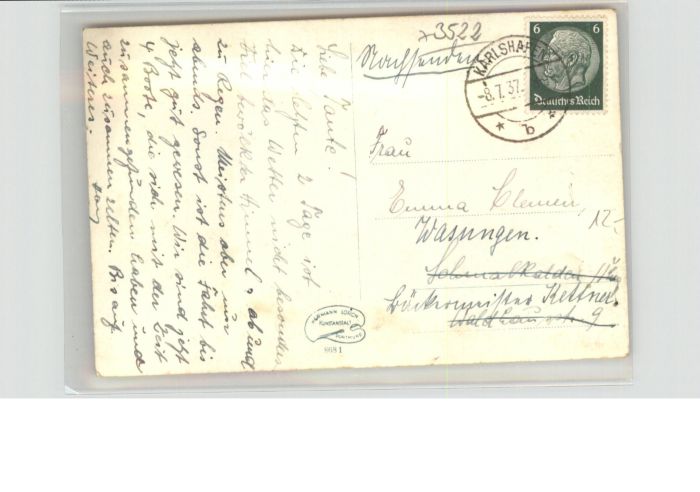 Liebe Tante!
Die letzten 2 Tage ist
hier das Wetter nicht besonders
Viel bewölkter Himmel, ab und
zu Regen. Meistens aber nur
abends. Sonst ist die Fahrt bis
jetzt gut gewesen. Wir sind jetzt
4 Boote, die sich mit der Zeit
zusammengefunden haben und
auch zusammen zelten. Bis auf
Weiteres.
*3522
Nachsenden
KARLSHAFEN
-8.7.37.
* b *
6 6
Deutsches Reich
Frau
Emma Clemen,
12-
Wasungen.
Schmalkalden
Bäckermeister Kettner
Waldhausstr 9
HERMANN LORCH
KUNSTANSTALT
DORTMUND
6681